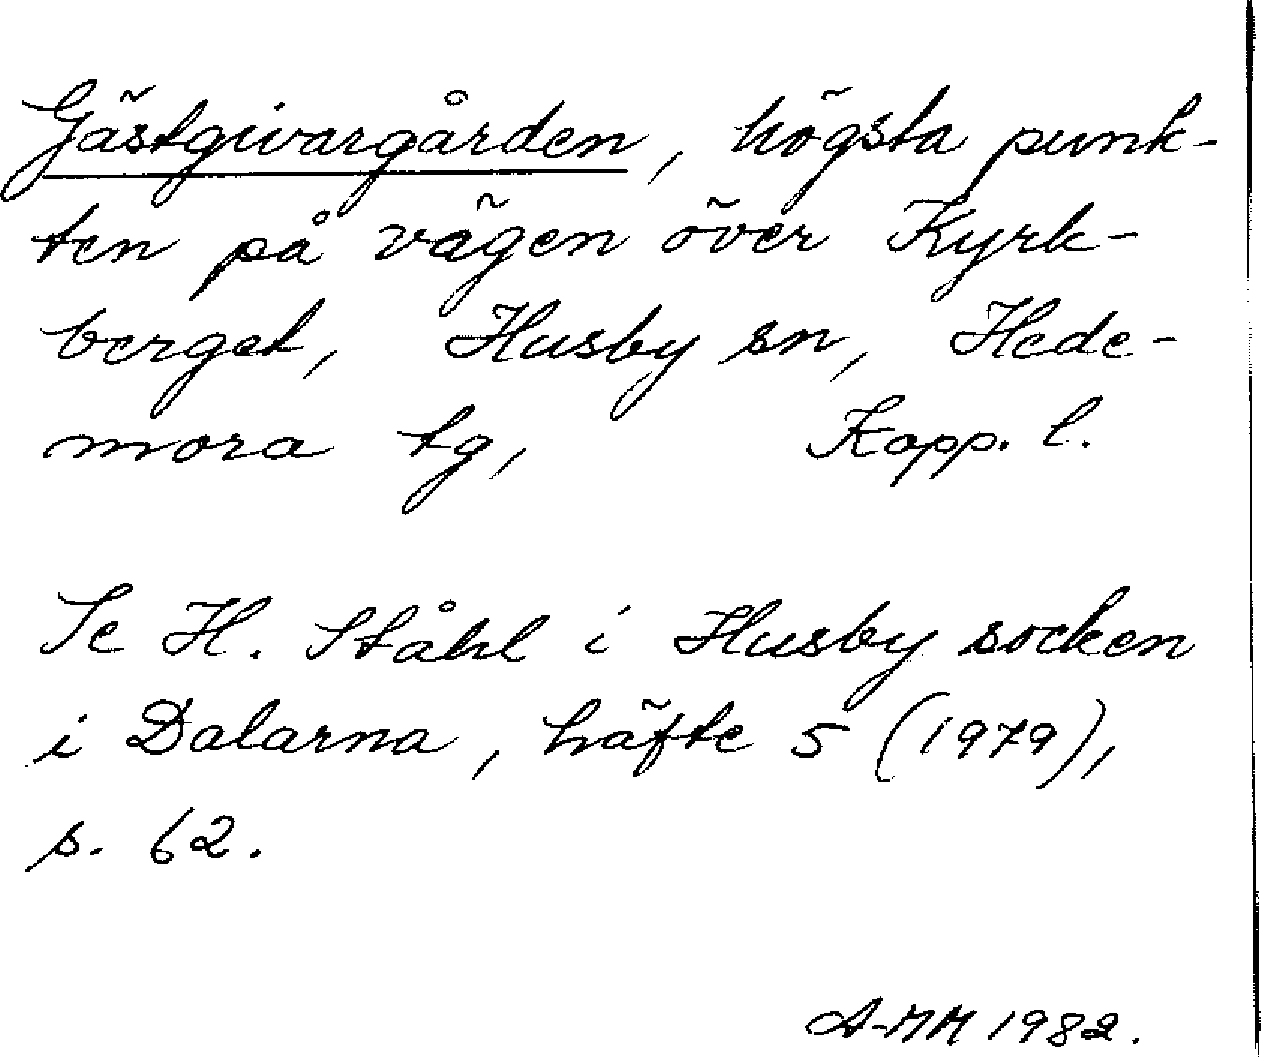 Gästgivargården, högsta punk-
ten på vägen över Kyrk-
berget, Husby sn, Hede-
mora tg, Kopp. l.
Se H. Ståhl i Husby socken
i Dalarna, häfte 5 (1979),
s. 62.
A-MM 1982.